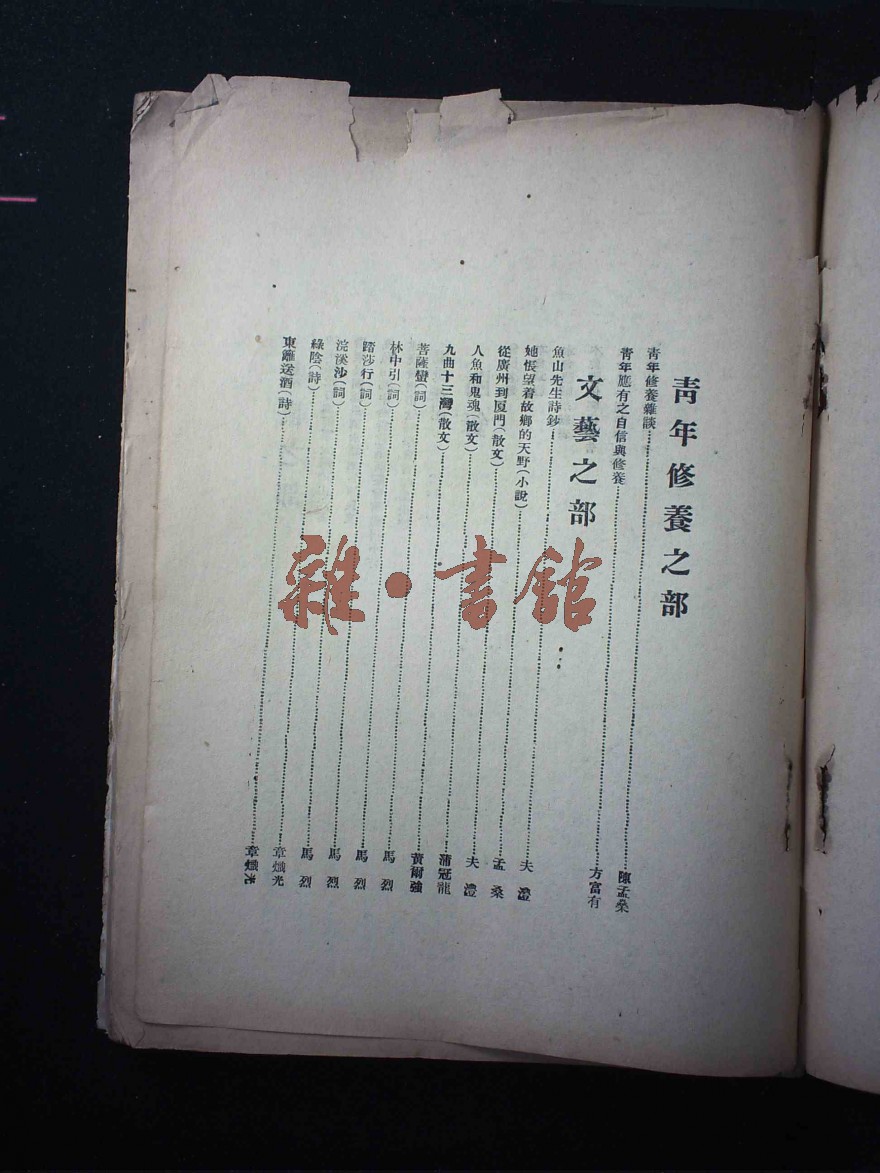 青年修養之部
青年修養雜談…………陳孟桑
青年應有之自信與修養…………方富有
文藝之部
魚山先生詩鈔…………夫澧
她悵望着故鄉的天野(小說)…………孟桑
從廣州到厦門(散文)…………夫澧
人魚和鬼魂(散文)…………蒲冠龍
九曲十三灣(散文)…………黃爾強
菩薩蠻(詞)…………馬烈
林中引(詞)…………馬烈
踏莎行(詞)…………馬烈
浣溪沙(詞)…………馬烈
綠陰(詩)…………章熾光
東籬送酒(詩)…………章熾光
雜·書館